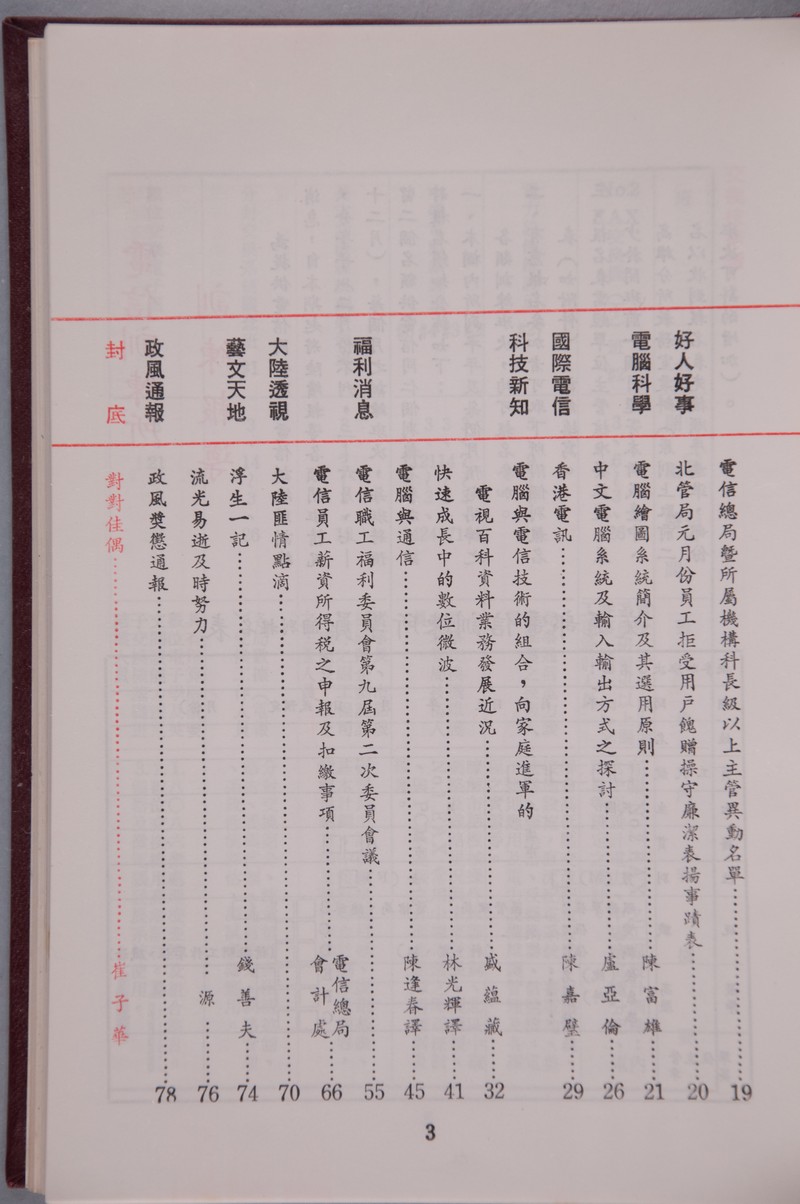 電信總局暨所屬機構科長級以上主管異動名單 19
好人好事 北管局元月份員工拒受用戶餽贈操守廉潔表揚事蹟表 20
電腦科學 電腦繪圖系統簡介及其選用原則 陳富雄 21
中文電腦系統及輸入輸出方式之探討 盧亞倫 26
國際電信 香港電訊 陳嘉璧 29
科技新知 電腦與電信技術的組合，向家庭進軍的
電視百科資料業務發展近況 盛蘊藏 32
快速成長中的數位微波 林光輝譯 41
電腦與通信 陳逢春譯 45
福利消息 電信職工福利委員會第九屆第二次委員會議 55
電信員工薪資所得稅之申報及扣繳事項 電信總局會計處 66
大陸透視 大陸匪情點滴 70
藝文天地 浮生一記 錢善夫 74
流光易逝及時努力 源 76
政風通報 政風獎懲通報 78
封底 對對佳偶 崔子華
3